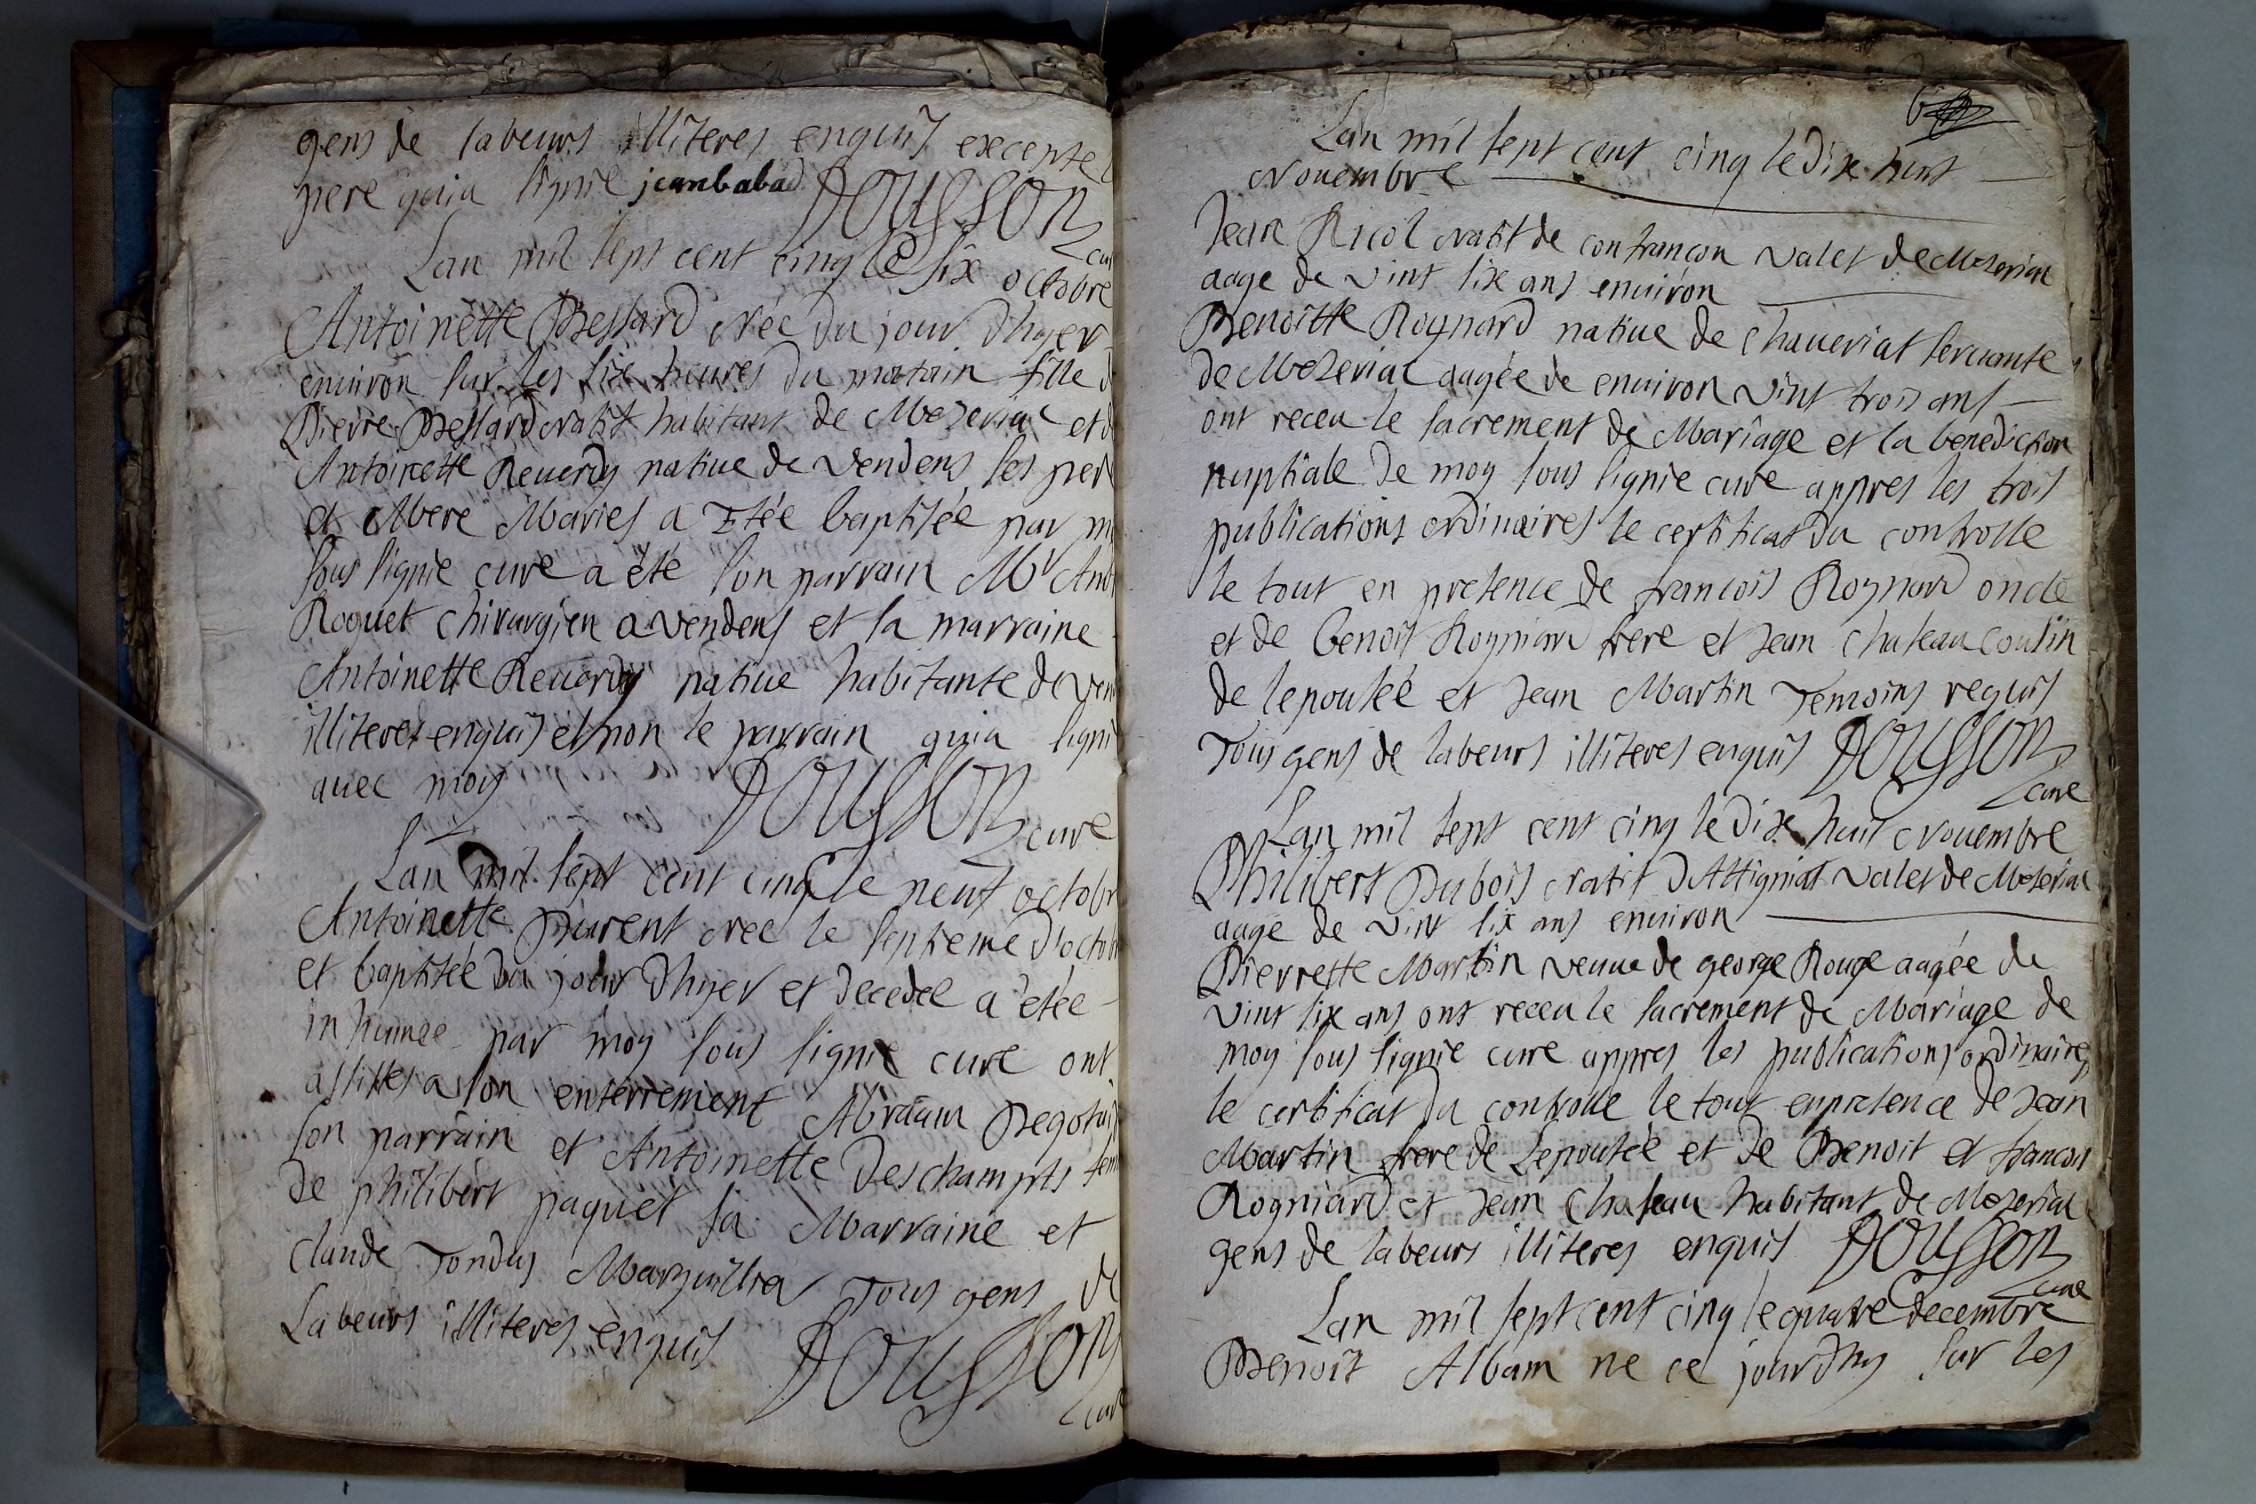 gens de labeurs illiteres enquis excepte l
pere quia signe jeanbabad Dousson
cur
Lan mil sept cent cinq le six octobre
Antoinette Bessard née du jour d'hyer
environ sur les six heures du matain fille d
Pierre Bessard natif habitant de Mezeriat et d
Antoinette Reverdy native de vendens ses per
et Mere Maries a Etée baptisée par m
sous signie curé a été son parrain Mr Ant
Roquet chirurgien a vendens et la marraine
Antoinette Reverdy native habitante de ven
illiteres enquis et non le parrain quia signi
avec moy Dousson curé
Lan mil sept cent cinq le neuf octobr
Antoinette Purent née le septieme d'octob
et baptisée du jour d'hyer et decedee a etée
inhumee par moy sous signie curé ont
assistes a son enterrement Abraam
son parrain et Antoinette Deschampts fem
de philibert paquet sa Marraine et
claude Tondus Marguillier Tous gens de
Labeurs illiteres enquis Dousson
cur
Lan mil sept cent cinq le dix huit
Novembre
Jean Ricol natif de confrancon valet de Mezeriat
aage de vint six ans environ
Benoitte Roynard native de chaveriat servante
de Mezeriat aagée de environ vint trois ans
ont receu le sacrement de Mariage et la benediction
nuptiale de moy sous signie curé appres les trois
publications ordinaires le certificat du controlle
le tout en presence de francois Roynard oncle
et de benoit Rogniard frere et Jean chateau cousin
de lepousée et Jean Martin Temoins requis
Tous gens de labeurs illiteres enquis Dousson
curé
Lan mil sept cent cinq le dix huit Novembre
Philibert Dubois natif d'Attigniat valet de Mezeriat
aage de vint six ans environ
Pierrette Martin veuve de george Rouge aagée de
vint six ans ont receu le sacrement de Mariage de
moy sous signie curé appres les publications ordinaires
le certificat du controlle le tout en presence de Jean
Martin frere de Lepousée et de Benoit et francois
Rogniard et Jean Chateau habitant de Mezeriat
gens de labeurs illiteres enquis Dousson
curé
Lan mil sept cent cinq le quatre decembre
Benoit Albam ne ce jourdhy sur les